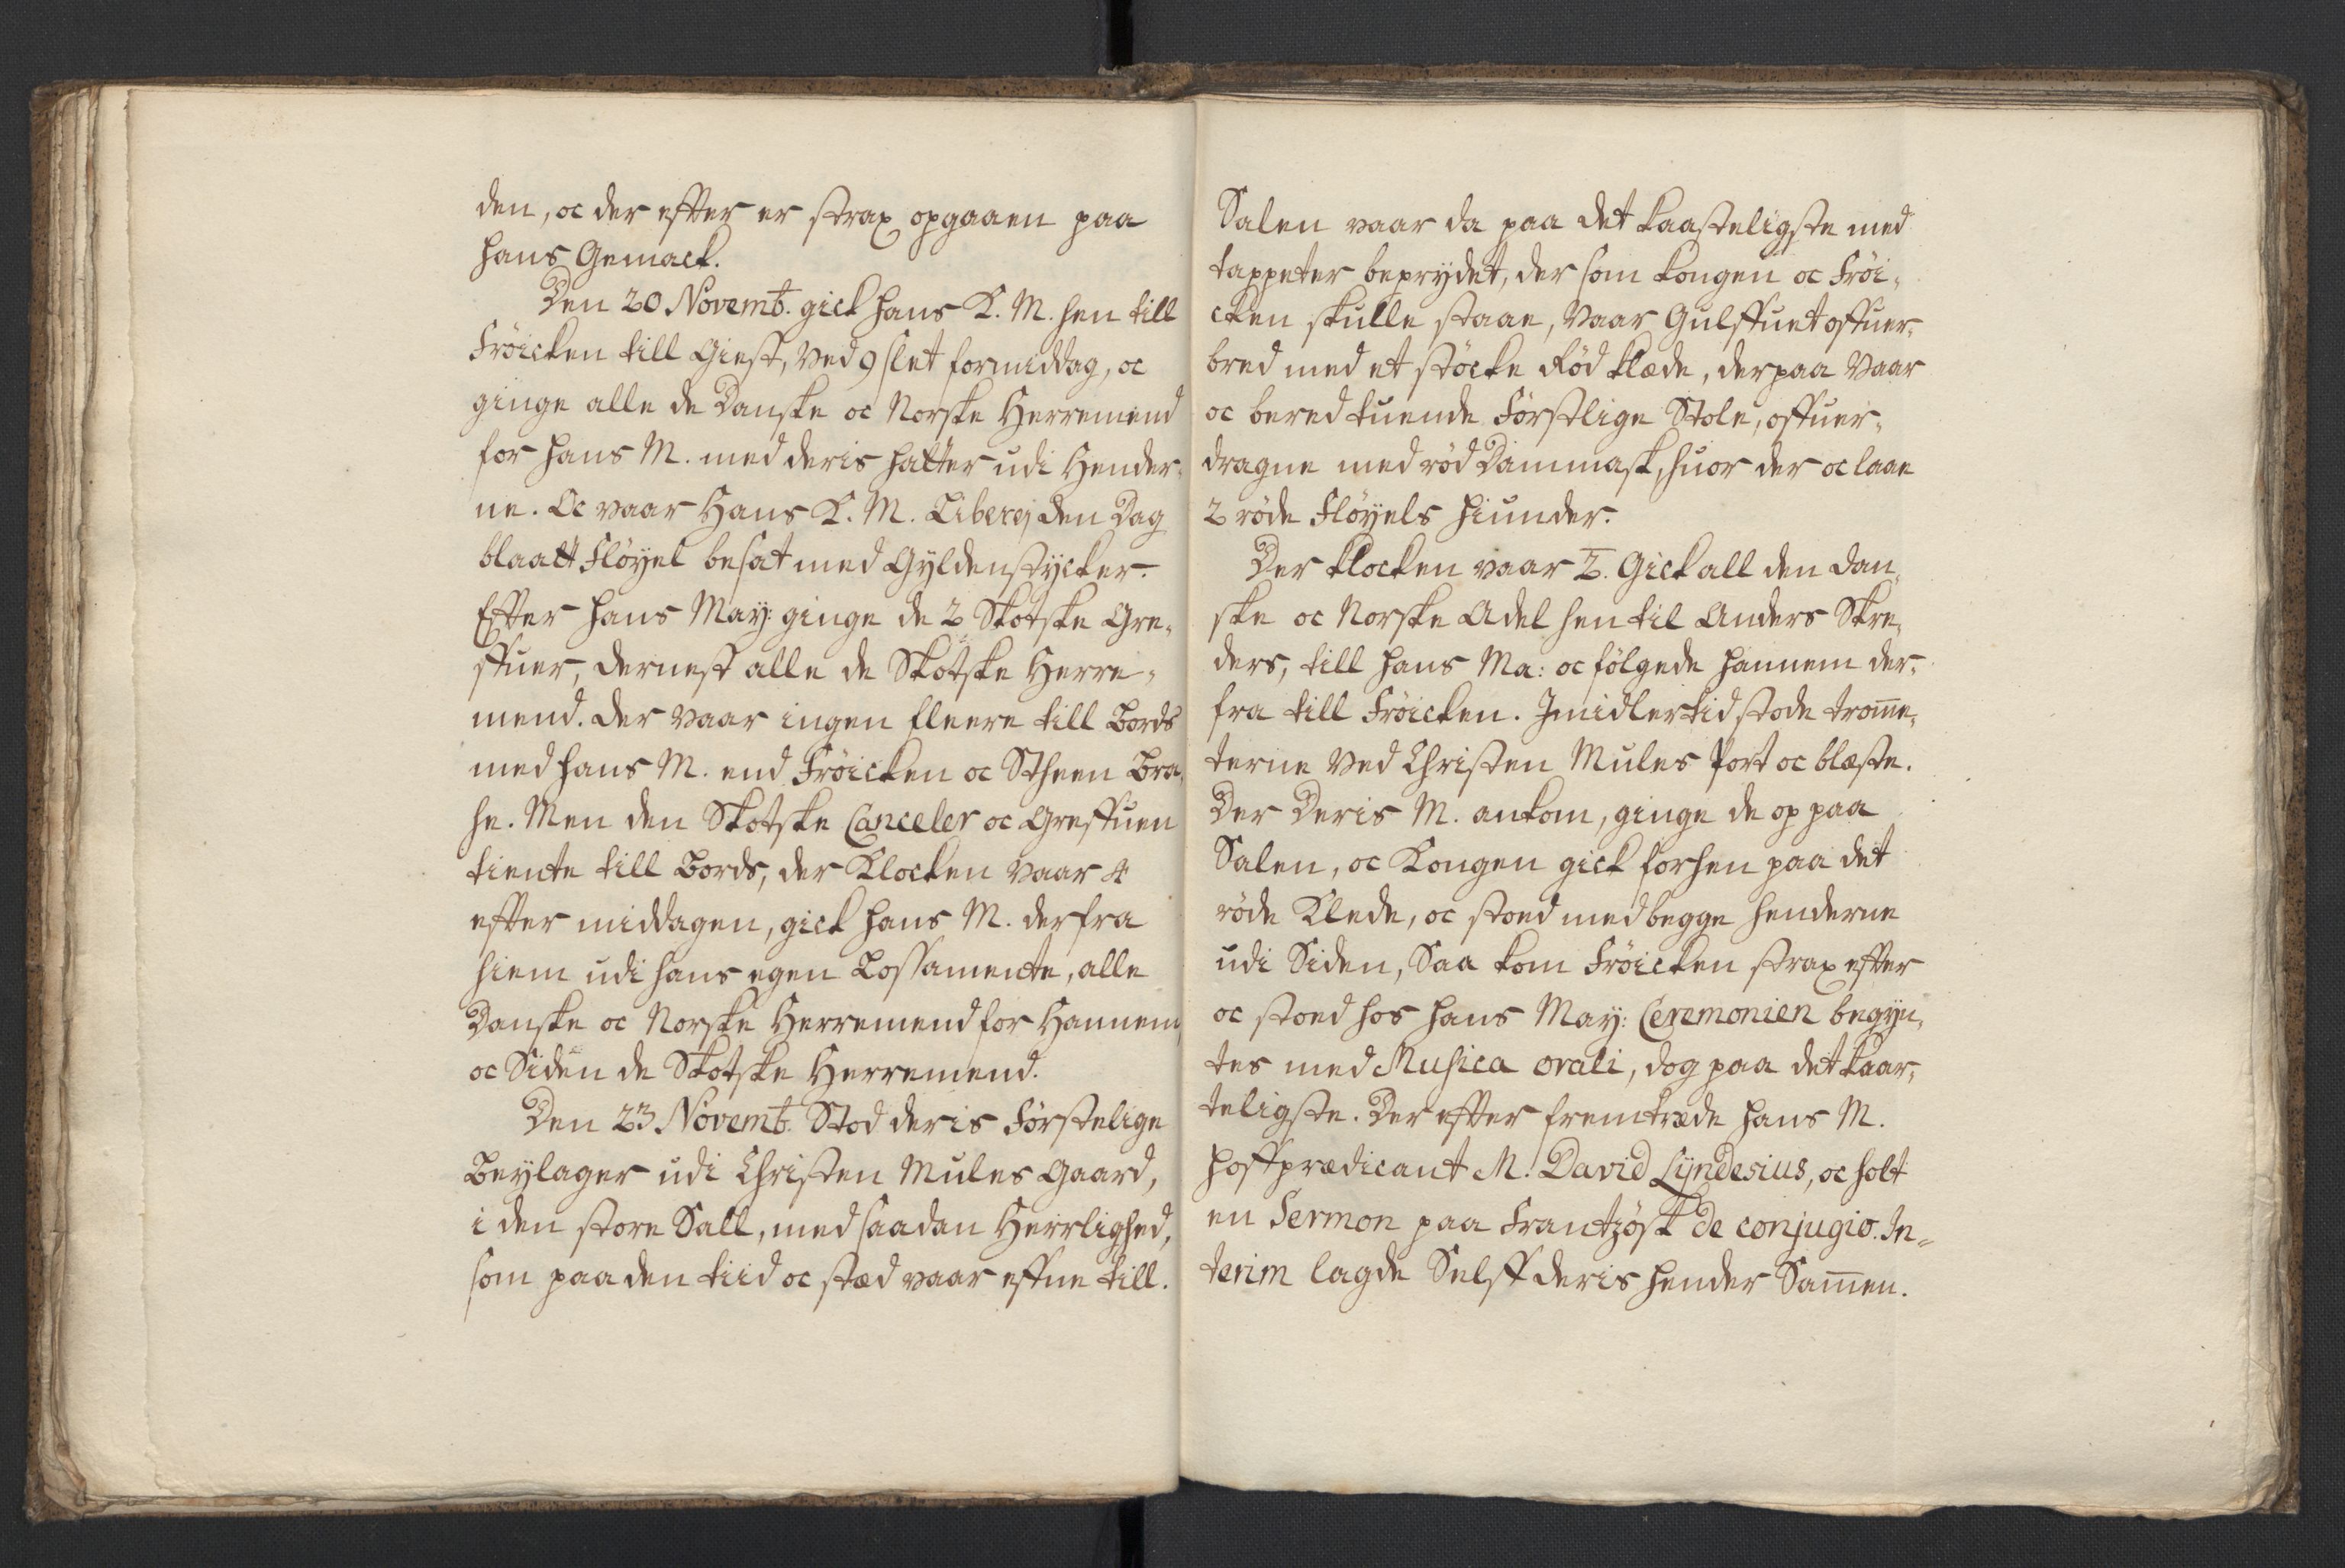 den, oc der effter er strax opgaaen paa
hans Gemack.
Den 20 Novemb. gick hans K. M. hen till
Fröicken till Giest, ved 9 slet formiddag, oc
ginge alle de Danske oc Norske Herremend
for hans M. med deris hatter udi Hender-
ne. Oc vaar Hans K. M. Liberej den Dag
blaatt Fløyel besat med Gyldenstycker.
Effter hans May: ginge de 2 Skotske Gre-
ffuer, dernest alle de Skotske Herre-
mend. der vaar ingen fleere till Bords
med hans M. end Fröicken oc Stheen Bra-
he. Men den Skotske Canceler oc Greffuen
tiente till Bords, der Klocken vaar 4
effter middagen, gick hans M. derfra
hiem udi hans egen Lossamente, alle
Danske oc Norske Herremend for Hannem,
oc Siden de Skotske Herremend.
Den 23 Novemb. Stod deris Förstelige
Beylager udi Christen Mules Gaard,
i den store Sall, med saadan Herrlighed,
som paa den tiid oc stæd vaar effne till.
Salen vaar da paa det kaasteligste med
tappeter beprydet, der som kongen oc Fröi-
cken skulle staae, Vaar Gulffuet offuer-
bred med et støcke Rød klæde, derpaa Vaar
oc bered tuende Förstlige Stole, offuer-
dragne med rød Dammask, huor der oc laae
2 röde Fløyels hiunder.
Der klocken vaar 2. Gick all den Dan-
ske oc Norske Adel hen til Anders Skre-
ders, till hans Ma: oc fölgede hannem der-
fra till Fröicken. Imidlertid stode trom̅e-
terne Ved Christen Mules Port oc blæste.
Der Deris M. ankom, ginge de op paa
Salen, oc Kongen gick forhen paa det
röde Klede, oc stoed med begge henderne
udi Siden, Saa kom Fröicken strax effter
oc stoed hos hans May: Ceremonien begyn-
tes med Musica orali, dog paa det kaar-
teligste. Der effter fremtræde hans M.
hoffprædicant M. David Lyndesius, oc holt
en Sermon paa Frantzösk de conjugio. In-
terim lagde Selff deris hender Sam̅en.